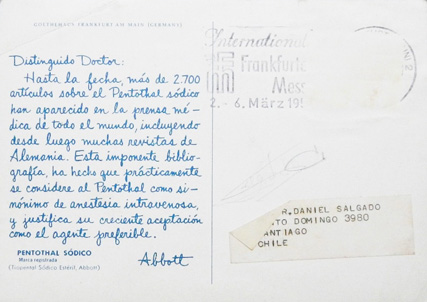 GOETHEHAUS FRANKFURT AM MAIN (GERMANY)
Distinguido Doctor:
Hasta la fecha, más de 2.700
artículos sobre el Pentothal sódico
han aparecido en la prensa mé-
dica de todo el mundo, incluyendo
desde luego muchas revistas de
Alemania. Esta imponente biblio-
grafía, ha hecho que prácticamente
se considere al Pentothal como si-
nónimo de anestesia intravenosa,
y justifica su creciente aceptación
como el agente preferible.
PENTOTHAL SÓDICO
Marca registrada
(Tiopental Sódico Estéril, Abbott)
Abbott
International
Frankfurte
Mess
2.-6. März 195
R. DANIEL SALGADO
TO DOMINGO 3980
ANTIAGO
CHILE